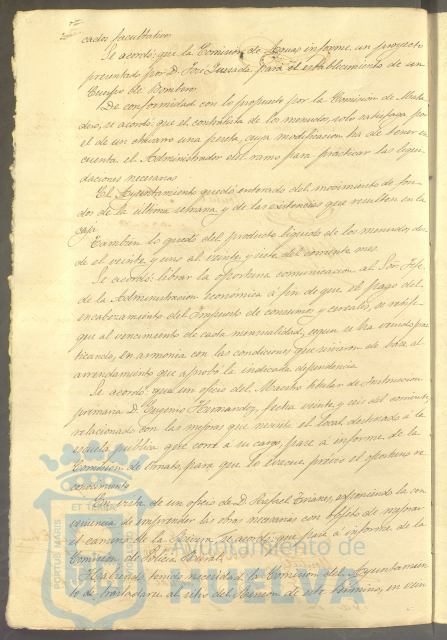 cados facultativos
Se acordó: que la Comision de Aguas informe un proyecto
presentado por D. José Quesada, para el establecimiento de un
Cuerpo de Bomberos
De conformidad con lo propuesto por la Comision de Mata
dero, se acordó: que el contratista de los menudos, solo satisfaga por
el de un una peseta, cuya modificacion ha de tener en
cuenta el Administrador del ramo para practicar las liqui
daciones necesarias
El Ayuntamiento quedó enterado del movimiento de fon
dos de la última semana y de las existencias que resultan en la
Caja.
Tambien lo quedó del producto líquido de los menudos, des
de el veinte y uno al veinte y siete del corriente mes.
Se acordó: librar la oportuna comunicacion al Sor. Jefe
de la Administracion económica á fin de que el pago del
encabezamiento del Impuesto de consumos y cereales, se verifi
que al vencimiento de cada mensualidad, segun se ha venido prac
ticando, en armonia con las condiciones que sirvieron de base al
arrendamiento que aprobó la indicada dependencia
Se acordó: que un oficio del Maestro titular de Instruccion
primaria D. Eugenio Hernandez, fecha veinte y seis del corriente,
relacionado con las mejoras que necesita el local destinado á la
escuela pública que corre á su cargo, pase á informe de la
Comision de Ornato, para que lo evacue, prévio el oportuno re
conocimiento
En vista de un oficio de D. Rafael exponiendo la con
veniencia de emprender las obras necesarias con objeto de mejorar
el camino de la se acordó: que pase á informe de la
Comision de Policia Rural.
Habiendo tenido necesidad la Comision del Ayuntamien
to de trasladarse al sitio del de este término, en
PORTUS MARIS
ET TERRÆ
Ayuntamiento de
HUELVA